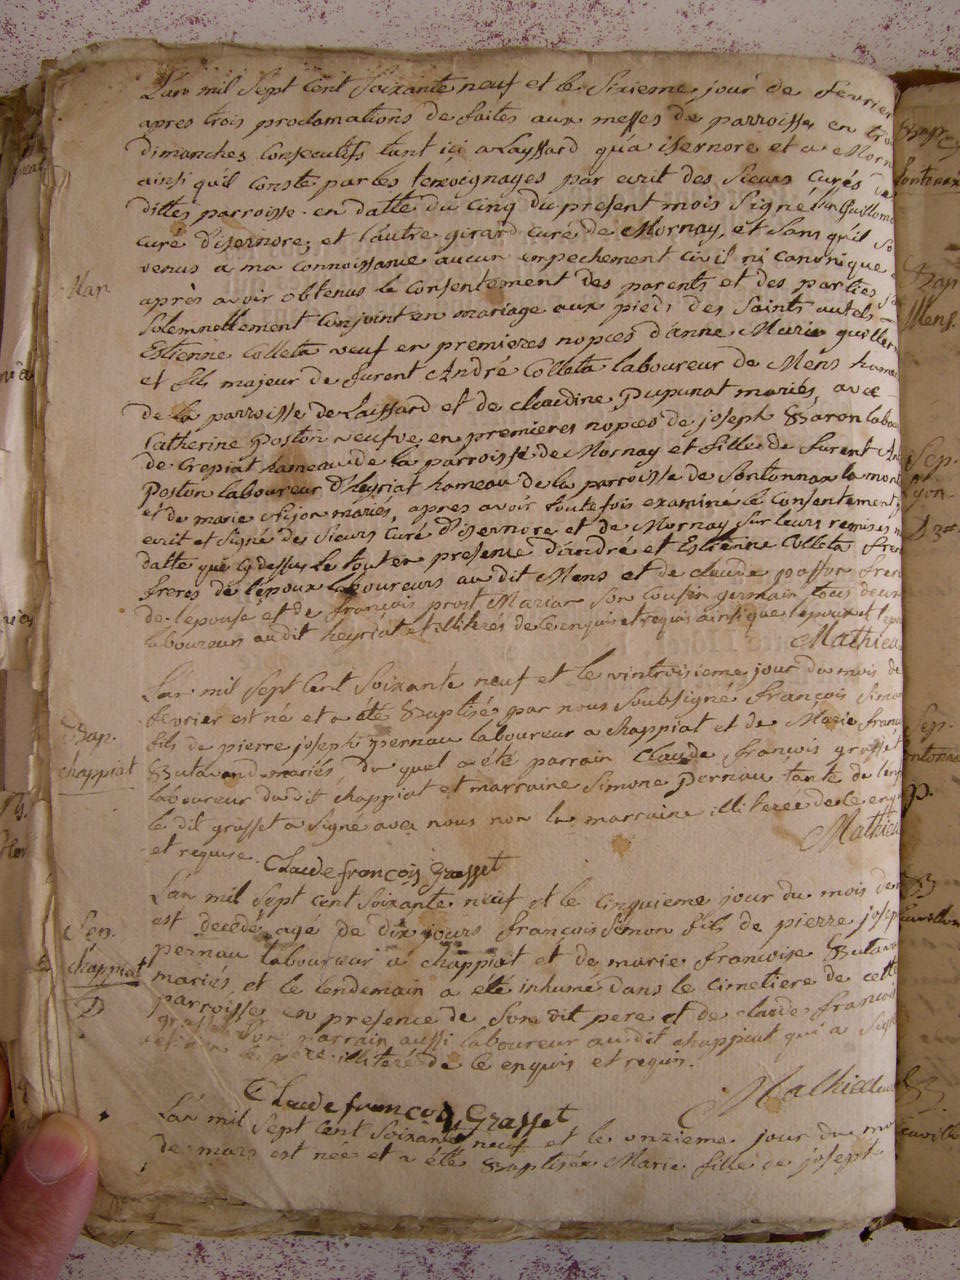 L'an mil Sept Cent Soixante neuf et le Sixieme jour de fevrier
apres trois proclamations de faites aux messes de parroisse, en trois
dimanches Consecutifs tant ici a Layssard qu'a isernore et a Morn
ainsi qu'il Conste par les temoignages par ecrit des Sieurs Curés de
dittes parroisse en datte du Cinq du present mois Signé Guillome
curé d'isernore; et l'autre girard curé de Mornay, et Sans qu'il So
venus a ma connoissance aucun empechement civil ni canonique
Mar.
après avoir obtenus le Consentement des parents et des parties
Solemnellement Conjoint en mariage aux pieds des Saints autels
Estienne Colleta veuf en premieres nopces d'anne Marie guiller
et fils majeur de furent André Colleta laboureur de Mens hameau
de la parroisse de Laissard et de claudine Pupunat mariés, avec
Catherine Poston veufve en premieres nopces de joseph Baron labou
de Crepiat hameau de la parroisse de Mornay et fille de furent An
Poston laboureur d'heyriat hameau de la parroisse de Sontonnax la mont
et de marie mariés, apres avoir toutefois examiné le Consentement
ecrit et Signé des Sieurs Curé d'isernore et de Mornay sur leurs remises
datte que cy dessus, le tout en presence d'andré et Estienne Colleta frer
freres de l'epoux laboureurs au dit Mens et de claude poston frere
de l'epouse et de françois prost Mariar Son Cousin germain tous deux
laboureurs au dit heyriat et illiterés de ce enquis et requis ainsi que l'epoux et l'epou
Mathieu
L'an mil Sept Cent Soixante neuf et le vintroisieme jour du mois de
fevrier est né et a été Baptisé par nous Soubsigné françois Simon
Bap.
chappiat
fils de pierre joseph pernau laboureur a chappiat et de Marie franc
Butavand mariés, du quel a été parrain Claude françois grosset
laboureur du dit chappiat et marraine Simone Pernau tante de l'en
le dit grosset a Signé avec nous non la marraine illiterée de ce enq
et requise. Claude françois Grasset
Mathieu
L'an mil Sept Cent Soixante neuf et le Cinquieme jour du mois de
Sep.
chappiat
D
est decedé agé de dix jours françois Simon fils de pierre josep
pernau laboureur a chappiat et de marie francoise Butav
mariés, et le lendemain a été inhumé dans le Cimetiere de cett
parroisse en presence de Son dit pere et de claude francois
Son parrain aussi laboureur au dit chappiat qui a Sign
pere illiteré de ce enquis et requis.
Claude françois Grasset
Mathieu
L'an mil Sept Cent Soixante neuf et le onzieme jour du mo
de mars est née et a été Baptisée Marie fille de joseph